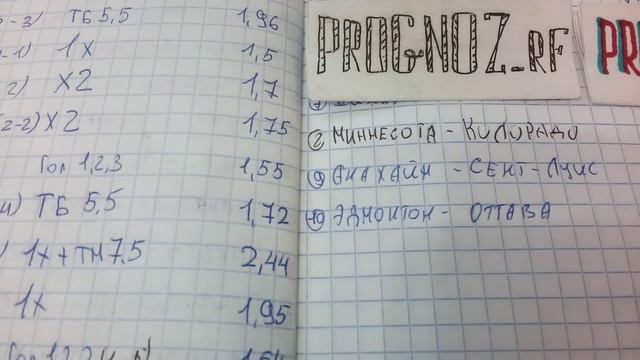 -3) ТБ 5,5 1,96
-1) 1X 1,5
2) X2 1,7
(2-2) X2 1,75
Гол 1,2,3 1,55
ТБ 5,5 1,72
1X + ТМ 7,5 2,44
1X 1,95
PROGNOZ_RF
PR
МИННЕСОТА - КОЛОРАДО
9 АНАХАЙМ - СЕНТ-ЛУИС
10 ЭДМОНТОН - ОТТАВА